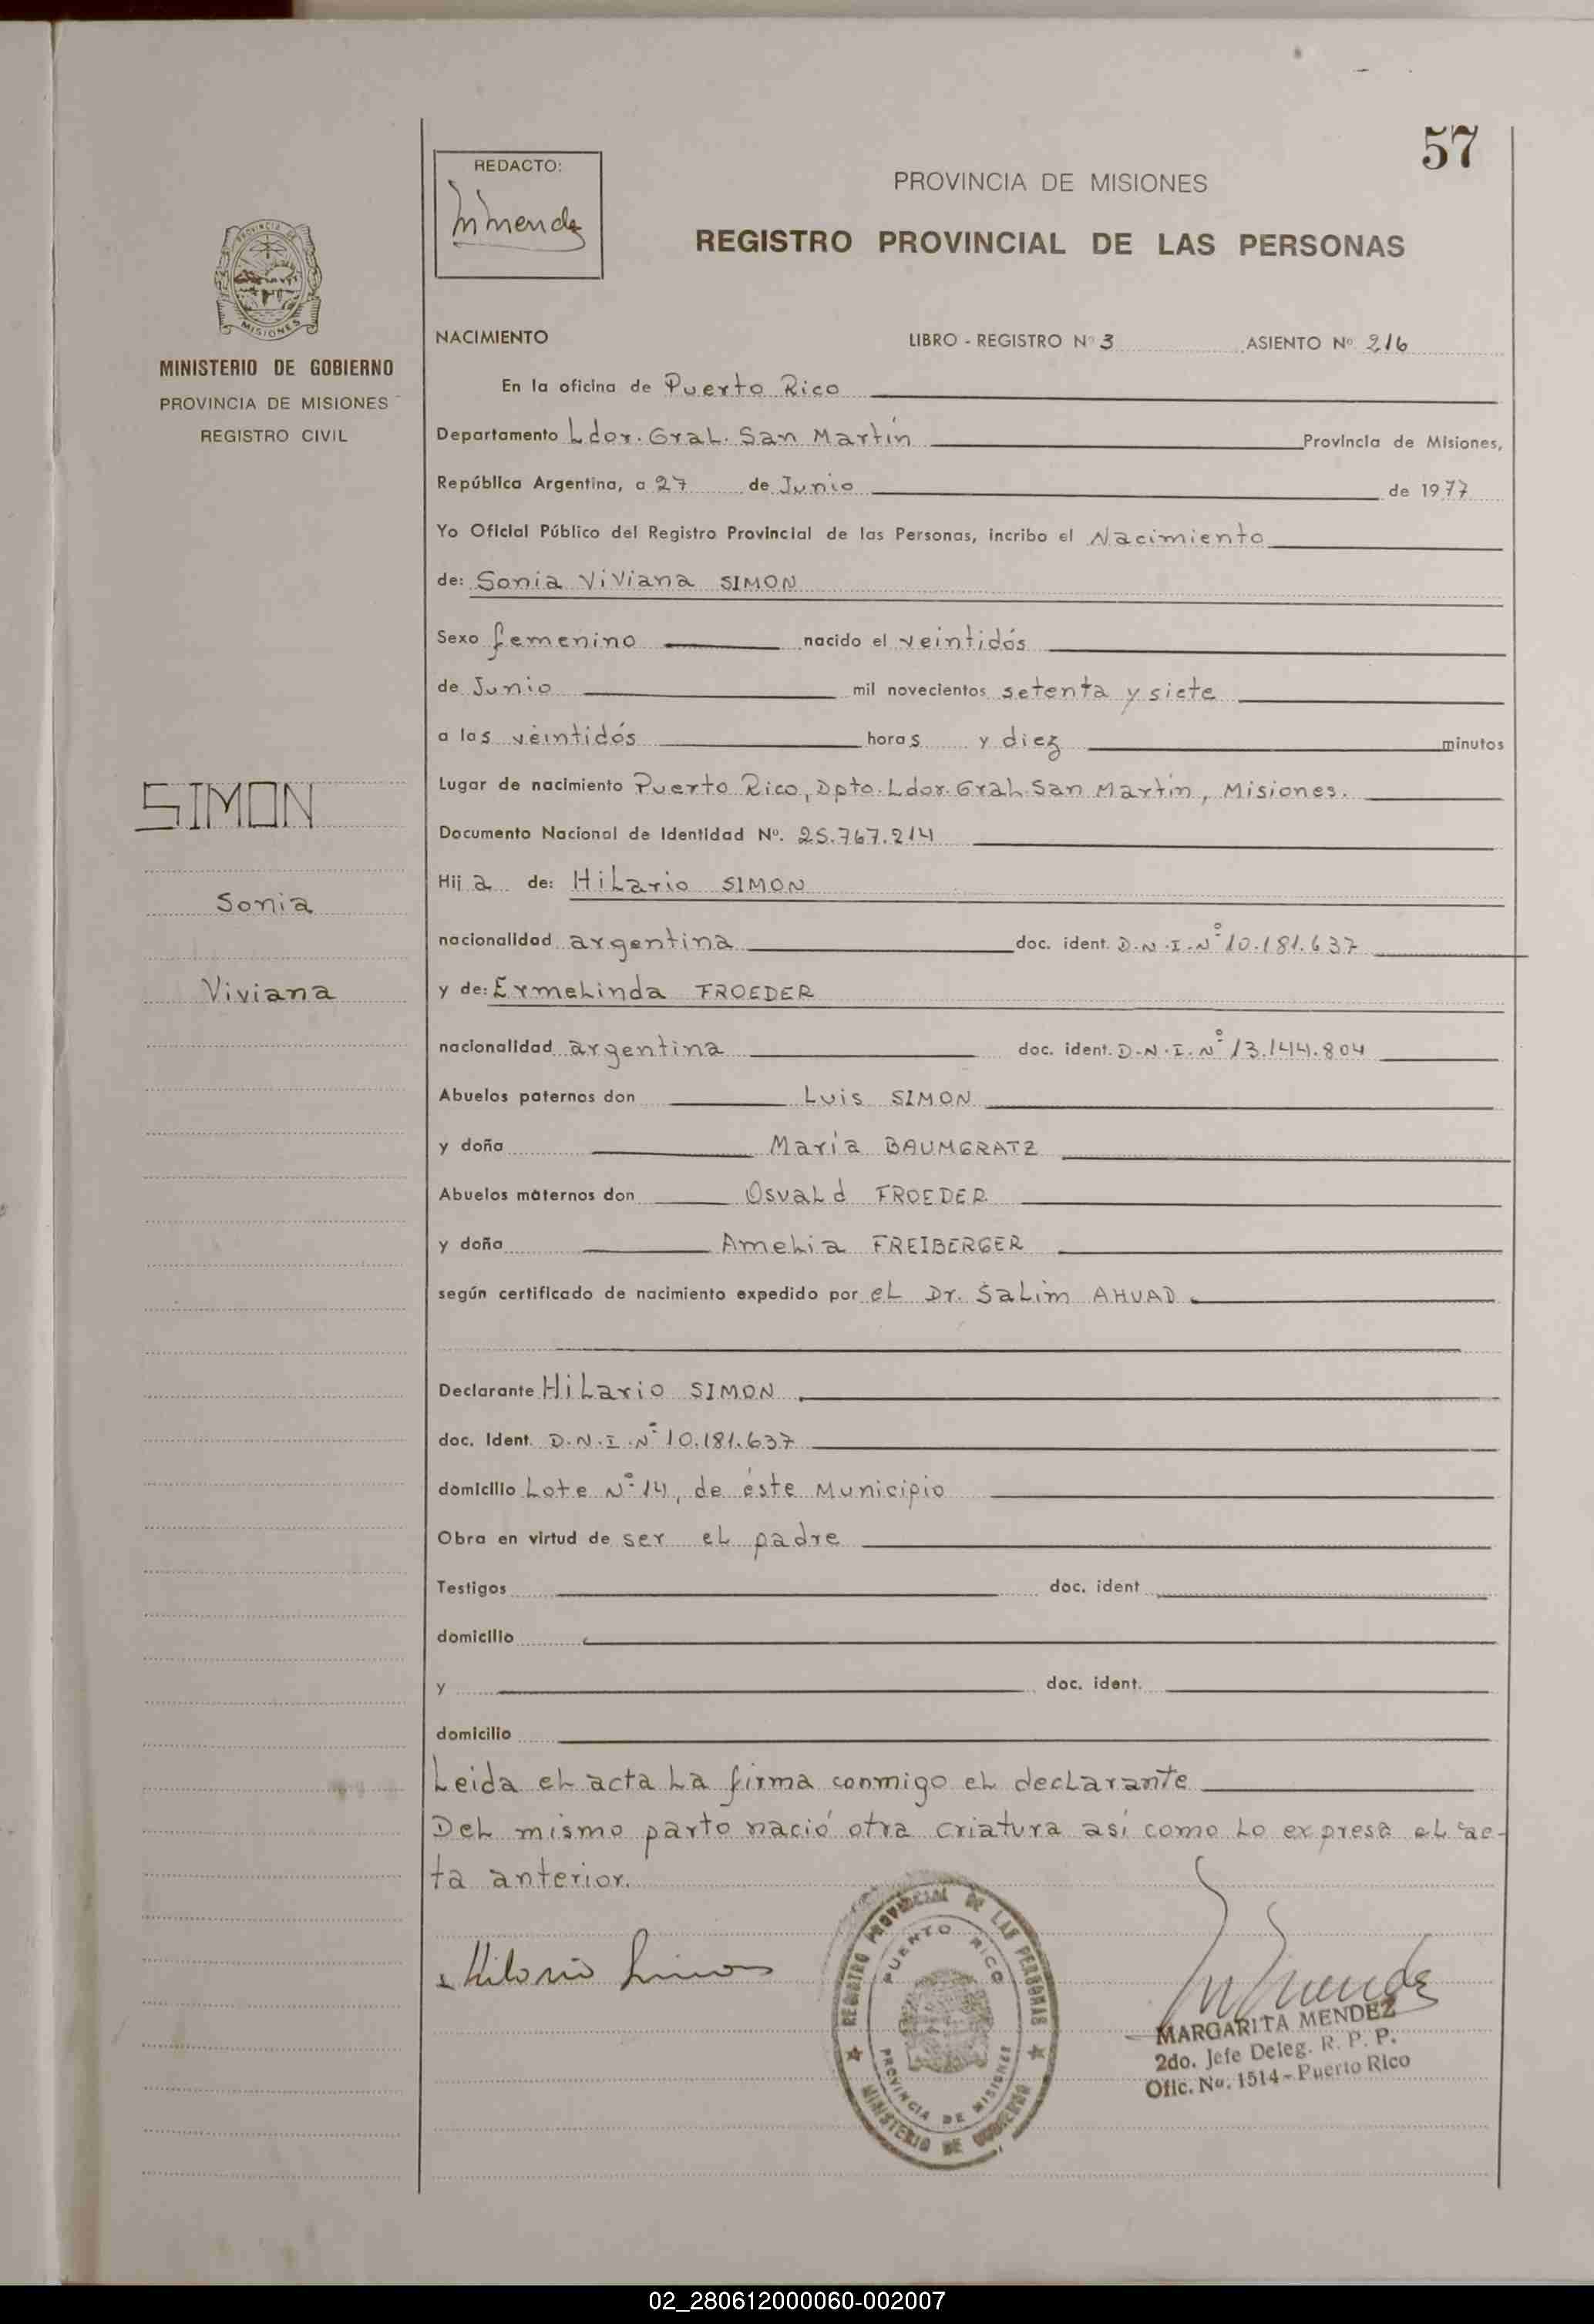 57
REDACTO:
MMendez
PROVINCIA DE MISIONES
REGISTRO PROVINCIAL DE LAS PERSONAS
PROVINCIA DE
MISIONES
MINISTERIO DE GOBIERNO
PROVINCIA DE MISIONES
REGISTRO CIVIL
SIMON
Sonia
Viviana
NACIMIENTO LIBRO - REGISTRO Nº 3 ASIENTO Nº 216
En la oficina de Puerto Rico
Departamento Ldor. Gral. San Martín Provincia de Misiones,
República Argentina, a 27 de Junio de 1977
Yo Oficial Público del Registro Provincial de las Personas, incribo el Nacimiento
de: Sonia Viviana SIMON
Sexo femenino nacido el veintidós
de Junio mil novecientos setenta y siete
a las veintidós horas y diez minutos
Lugar de nacimiento Puerto Rico, Dpto. Ldor. Gral. San Martín, Misiones.
Documento Nacional de Identidad Nº. 25.767.214
Hij a de: Hilario SIMON
nacionalidad argentina doc. ident. D.N.I.Nº 10.181.637
y de: Ermelinda FROEDER
nacionalidad argentina doc. ident. D.N.I.Nº 13.144.804
Abuelos paternos don Luis SIMON
y doña María BAUMGRATZ
Abuelos maternos don Osvald FROEDER
y doña Amelia FREIBERGER
según certificado de nacimiento expedido por el Dr. Salim AHUAD.
Declarante Hilario SIMON
doc. Ident. D.N.I.Nº 10.181.637
domicilio Lote Nº 14, de éste Municipio
Obra en virtud de ser el padre
Testigos doc. ident
domicilio
y doc. ident.
domicilio
Leida el acta la firma conmigo el declarante
Del mismo parto nació otra criatura así como lo expresa el ac-
ta anterior.
Hilario Simon
REGISTRO PROVINCIAL DE LAS PERSONAS
PUERTO RICO
PROVINCIA DE MISIONES
MINISTERIO DE GOBIERNO
MMendez
MARGARITA MENDEZ
2do. Jefe Deleg. R. P. P.
Ofic. No. 1514 - Puerto Rico
02_280612000060-002007